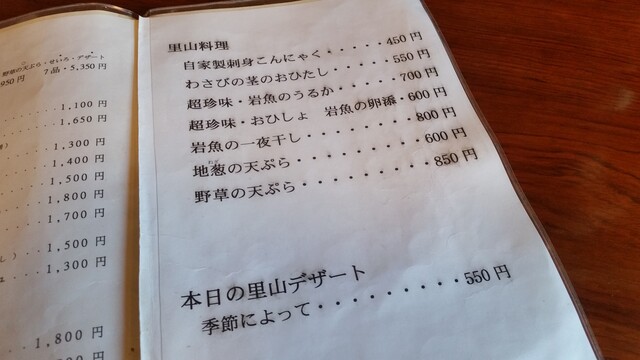 野草の天ぷら・せいろ・デザート
950円 7品・5,350円
1,100円
1,650円
1,300円
1,400円
1,500円
1,800円
1,700円
1,500円
1,300円
1,800円
里山料理
自家製刺身こんにゃく・・・・・450円
わさびの茎のおひたし・・・・・550円
超珍味・岩魚のうるか・・・・・700円
超珍味・おひしょ 岩魚の卵添・600円
岩魚の一夜干し・・・・・・・・800円
地葱の天ぷら・・・・・・・・・600円
野草の天ぷら・・・・・・・・・850円
本日の里山デザート
季節によって・・・・・・・・・550円